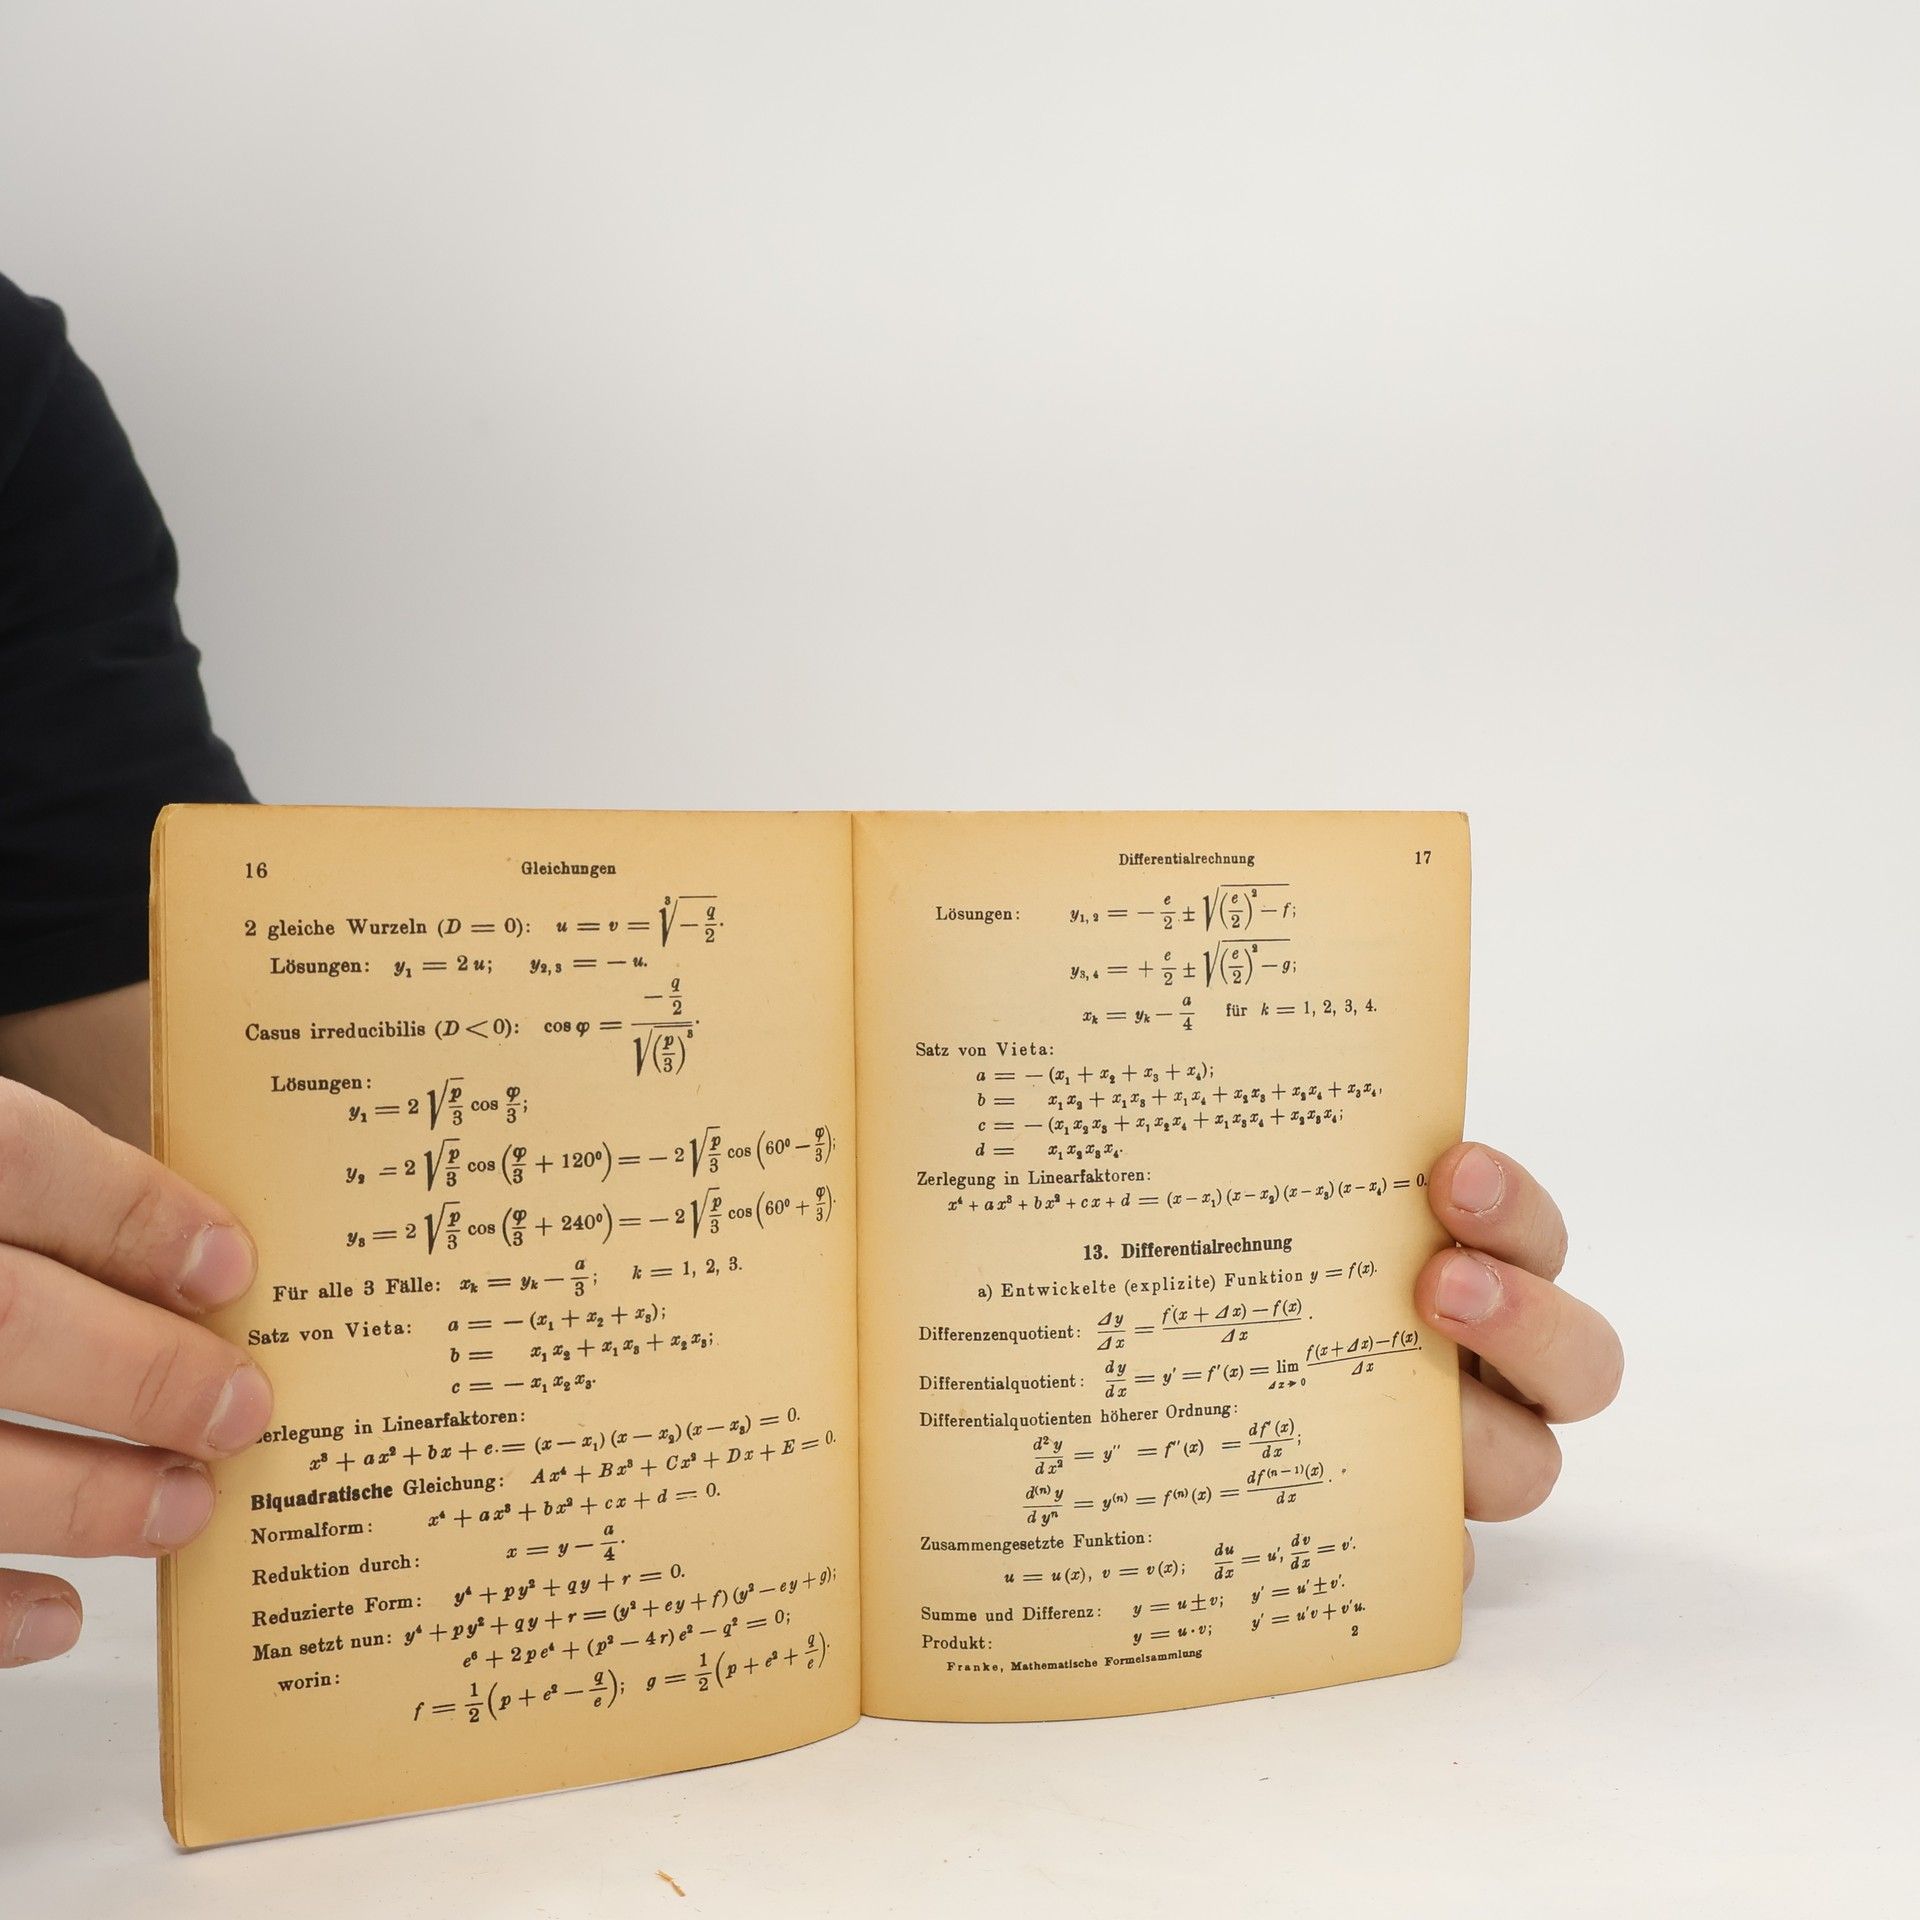 16 Gleichungen
2 gleiche Wurzeln (D = 0): u = v = ∛(−q/2).
Lösungen: y₁ = 2u; y₂,₃ = −u.
Casus irreducibilis (D < 0): cos φ = (−q/2)/√((p/3)³).
Lösungen:
y₁ = 2 √(p/3) cos φ/3;
y₂ = 2 √(p/3) cos (φ/3 + 120⁰) = −2 √(p/3) cos (60⁰ − φ/3);
y₃ = 2 √(p/3) cos (φ/3 + 240⁰) = −2 √(p/3) cos (60⁰ + φ/3).
Für alle 3 Fälle: xₖ = yₖ − a/3; k = 1, 2, 3.
Satz von Vieta: a = −(x₁ + x₂ + x₃);
b = x₁x₂ + x₁x₃ + x₂x₃;
c = −x₁x₂x₃.
erlegung in Linearfaktoren:
x³ + ax² + bx + e = (x − x₁)(x − x₂)(x − x₃) = 0.
Biquadratische Gleichung: Ax⁴ + Bx³ + Cx² + Dx + E = 0.
Normalform: x⁴ + ax³ + bx² + cx + d = 0.
Reduktion durch: x = y − a/4.
Reduzierte Form: y⁴ + py² + qy + r = 0.
Man setzt nun: y⁴ + py² + qy + r = (y² + ey + f)(y² − ey + g);
worin: e⁶ + 2pe⁴ + (p² − 4r)e² − q² = 0;
f = 1/2(p + e² − q/e); g = 1/2(p + e² + q/e).
Differentialrechnung 17
Lösungen: y₁,₂ = −e/2 ± √((e/2)² − f);
y₃,₄ = +e/2 ± √((e/2)² − g);
xₖ = yₖ − a/4 für k = 1, 2, 3, 4.
Satz von Vieta:
a = −(x₁ + x₂ + x₃ + x₄);
b = x₁x₂ + x₁x₃ + x₁x₄ + x₂x₃ + x₂x₄ + x₃x₄,
c = −(x₁x₂x₃ + x₁x₂x₄ + x₁x₃x₄ + x₂x₃x₄;
d = x₁x₂x₃x₄.
Zerlegung in Linearfaktoren:
x⁴ + ax³ + bx² + cx + d = (x − x₁)(x − x₂)(x − x₃)(x − x₄) = 0.
13. Differentialrechnung
a) Entwickelte (explizite) Funktion y = f(x).
Differenzenquotient: Δy/Δx = (f(x + Δx) − f(x))/Δx.
Differentialquotient: dy/dx = y′ = f′(x) = lim Δx→0 (f(x + Δx) − f(x))/Δx.
Differentialquotienten höherer Ordnung:
d²y/dx² = y″ = f″(x) = df′(x)/dx;
d⁽ⁿ⁾y/dyⁿ = y⁽ⁿ⁾ = f⁽ⁿ⁾(x) = df⁽ⁿ⁻¹⁾(x)/dx.
Zusammengesetzte Funktion:
u = u(x), v = v(x); du/dx = u′, dv/dx = v′.
Summe und Differenz: y = u ± v; y′ = u′ ± v′.
Produkt: y = u · v; y′ = u′v + v′u.
Franke, Mathematische Formelsammlung 2